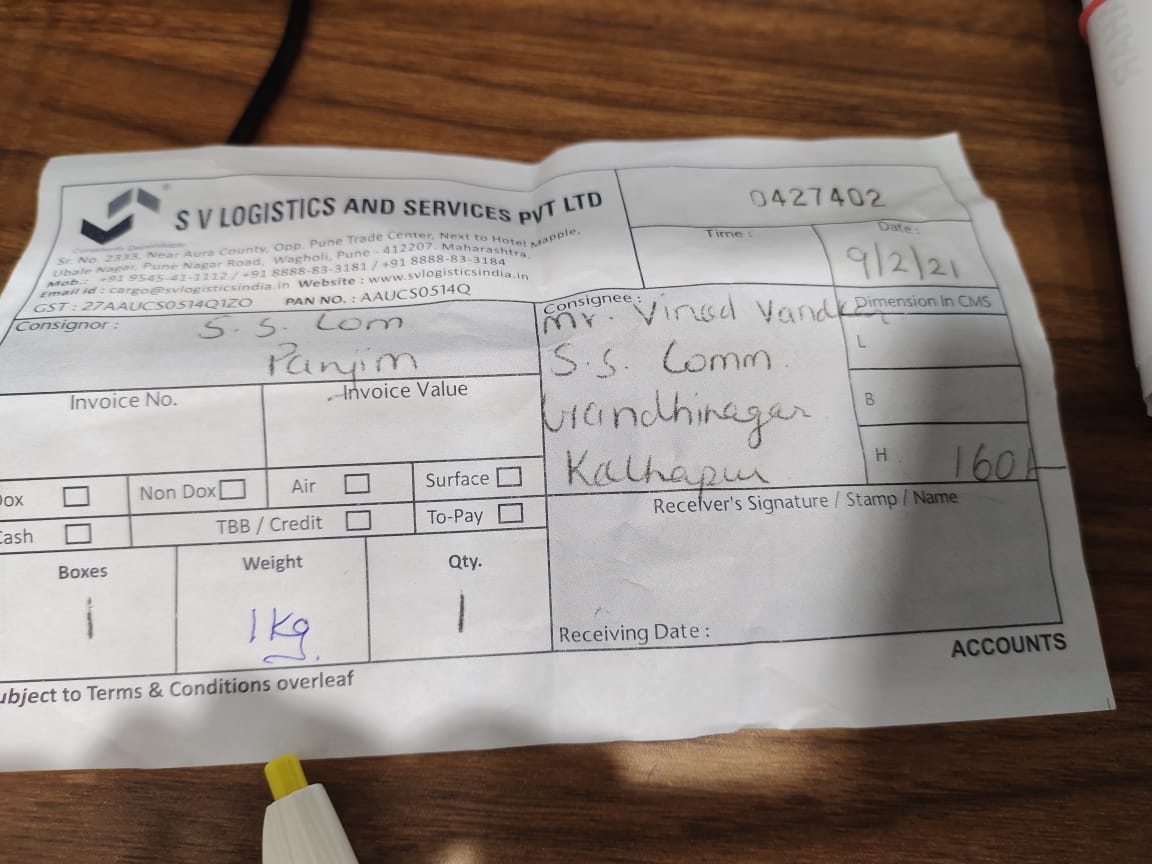 S V LOGISTICS AND SERVICES PVT LTD
Sr. No. 2333, Near Aura County, Opp. Pune Trade Center, Next to Hotel Mapple,
Ubale Nagar, Pune Nagar Road, Wagholi, Pune - 412207. Maharashtra.
Mob.: +91 9545-41-1112 / +91 8888-83-3181 / +91 8888-83-3184
Email id : cargo@svlogisticsindia.in Website : www.svlogisticsindia.in
GST : 27AAUCS0514Q1ZO PAN NO. : AAUCS0514Q
0427402
Time :
Date :
9/2/21
Consignor :
S. S. Com
Panjim
Consignee :
Mr. Vinod
S.S. Comm.
Gandhinagar
Kolhapur
Dimension In CMS
L
B
H
160/-
Invoice No.
Invoice Value
Dox
Non Dox
Air
Surface
Cash
TBB / Credit
To-Pay
Boxes
1
Weight
1 Kg.
Qty.
1
Receiver's Signature / Stamp / Name
Receiving Date :
ubject to Terms & Conditions overleaf
ACCOUNTS